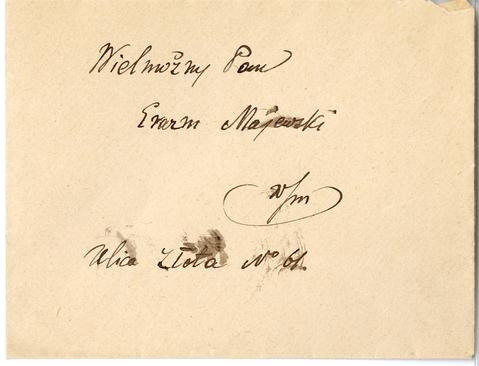 Wielmożny Pan
Erazm Majewski
w/m
Ulica Złota No 61.